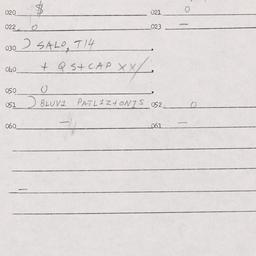 020 $ 021 0
022 0 023 —
030 ) SALO, T14
040 + QS+CAP XX/
050 0
051 ) BLUV1 052 0
060 — 061 —
—